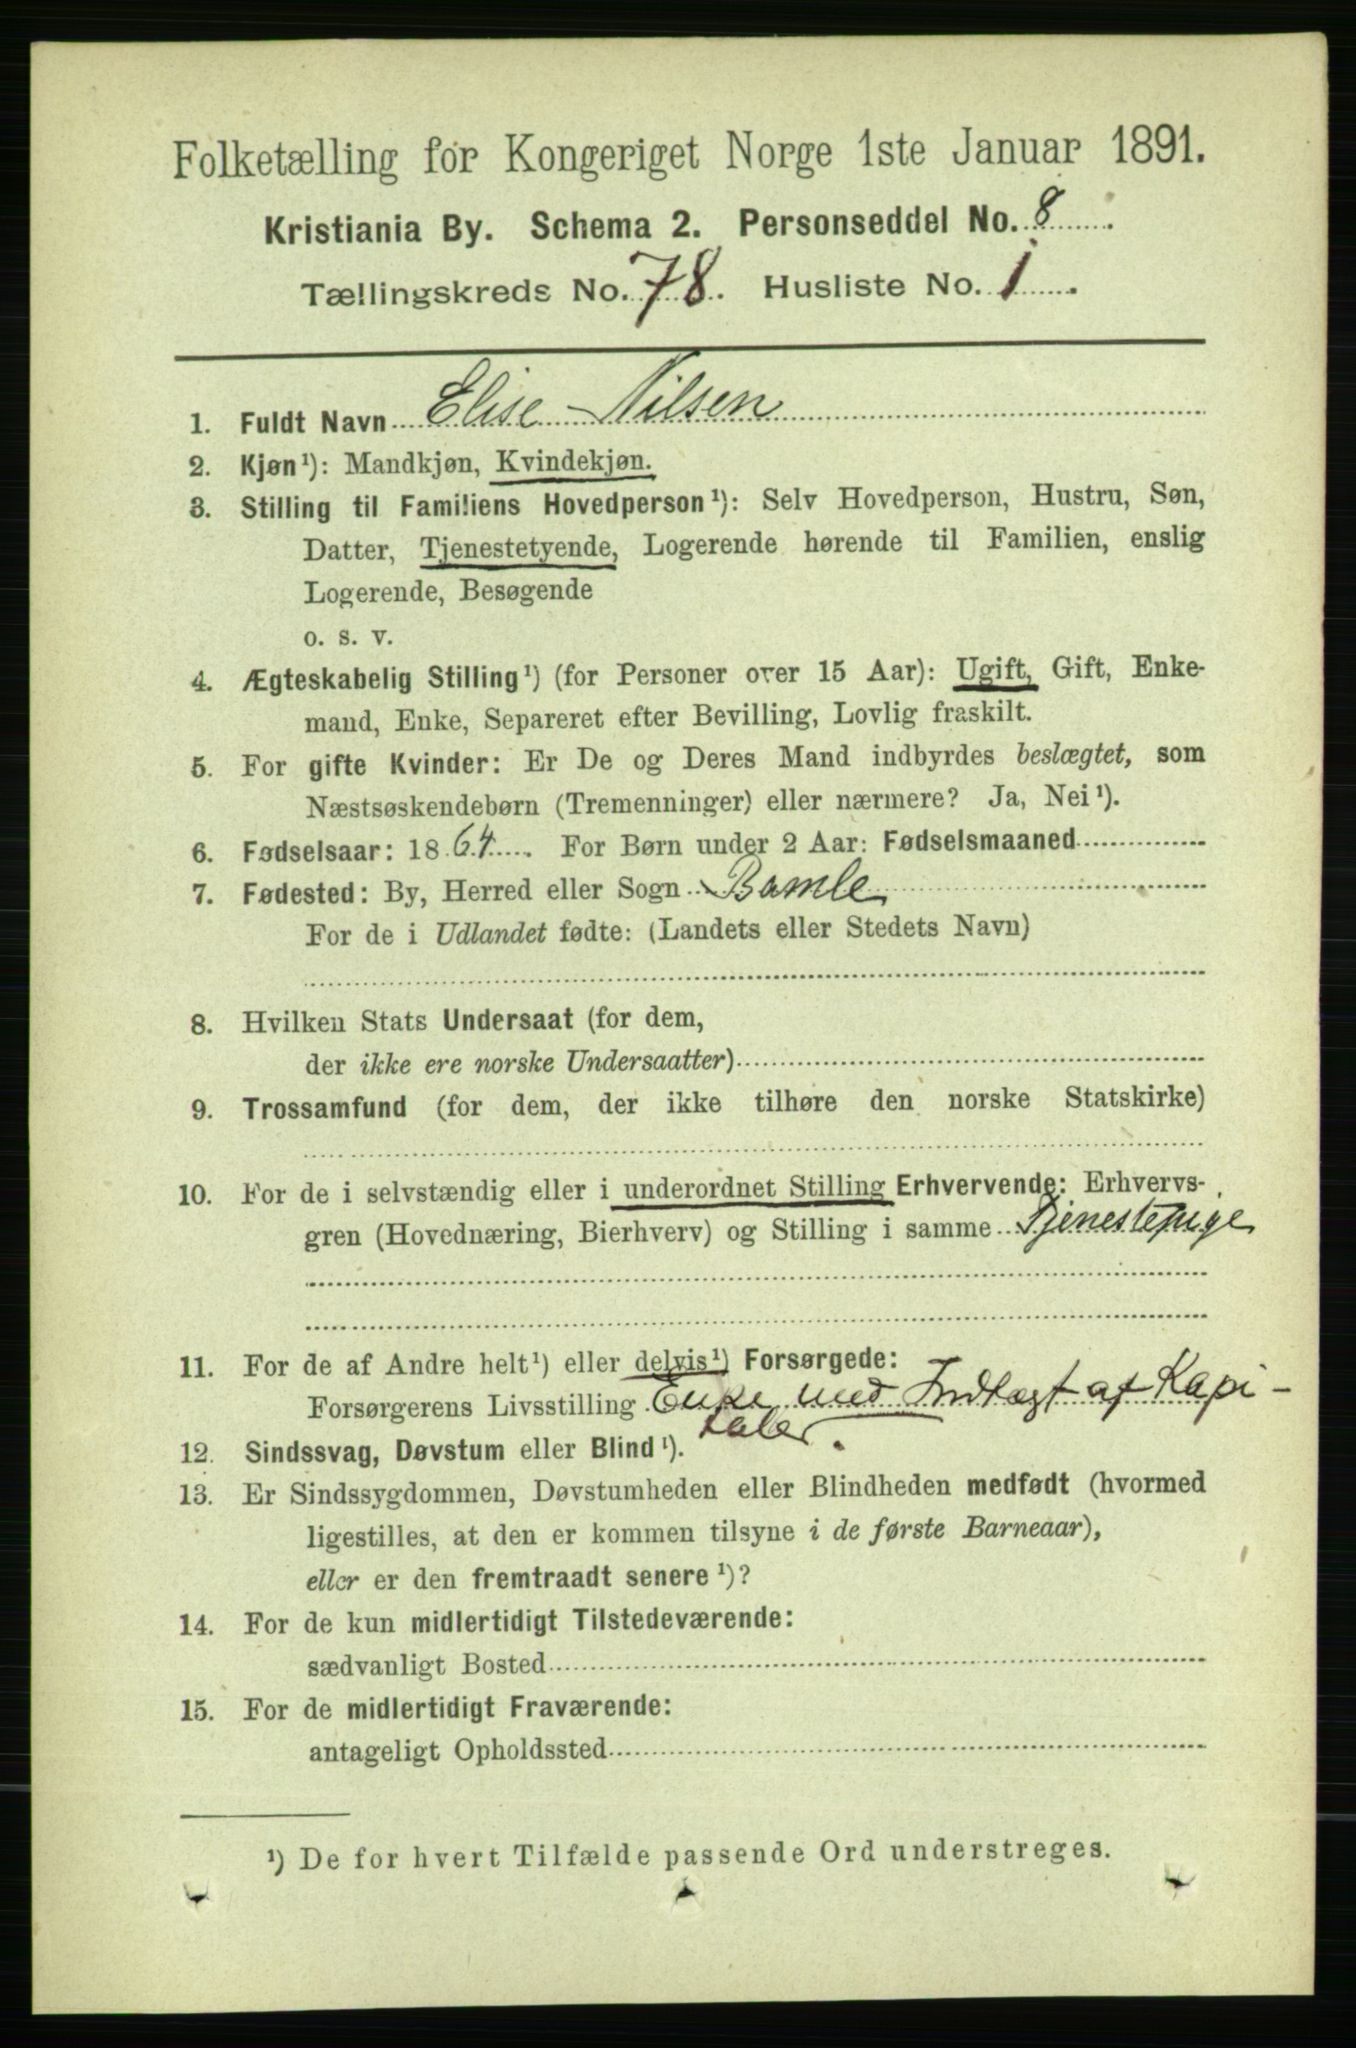 Folketælling for Kongeriget Norge 1ste Januar 1891.
Kristiania By. Schema 2. Personseddel No. 8
Tællingskreds No. 78. Husliste No. 1
1. Fuldt Navn Elise Nilsen
2. Kjøn¹): Mandkjøn, Kvindekjøn.
3. Stilling til Familiens Hovedperson¹): Selv Hovedperson, Hustru, Søn,
Datter, Tjenestetyende, Logerende hørende til Familien, enslig
Logerende, Besøgende
o. s. v.
4. Ægteskabelig Stilling¹) (for Personer over 15 Aar): Ugift, Gift, Enke-
mand, Enke, Separeret efter Bevilling, Lovlig fraskilt.
5. For gifte Kvinder: Er De og Deres Mand indbyrdes beslægtet, som
Næstsøskendebørn (Tremenninger) eller nærmere? Ja, Nei¹).
6. Fødselsaar: 1864. For Børn under 2 Aar: Fødselsmaaned
7. Fødested: By, Herred eller Sogn Bamle
For de i Udlandet fødte: (Landets eller Stedets Navn)
8. Hvilken Stats Undersaat (for dem,
der ikke ere norske Undersaatter)
9. Trossamfund (for dem, der ikke tilhøre den norske Statskirke)
10. For de i selvstændig eller i underordnet Stilling Erhvervende: Erhvervs-
gren (Hovednæring, Bierhverv) og Stilling i samme Tjenestepige
11. For de af Andre helt¹) eller delvis¹) Forsørgede:
Forsørgerens Livsstilling Enke med Indtægt af Kapi-
taler.
12. Sindssvag, Døvstum eller Blind¹).
13. Er Sindssygdommen, Døvstumheden eller Blindheden medfødt (hvormed
ligestilles, at den er kommen tilsyne i de første Barneaar),
eller er den fremtraadt senere¹)?
14. For de kun midlertidigt Tilstedeværende:
sædvanligt Bosted
15. For de midlertidigt Fraværende:
antageligt Opholdssted
¹) De for hvert Tilfælde passende Ord understreges.